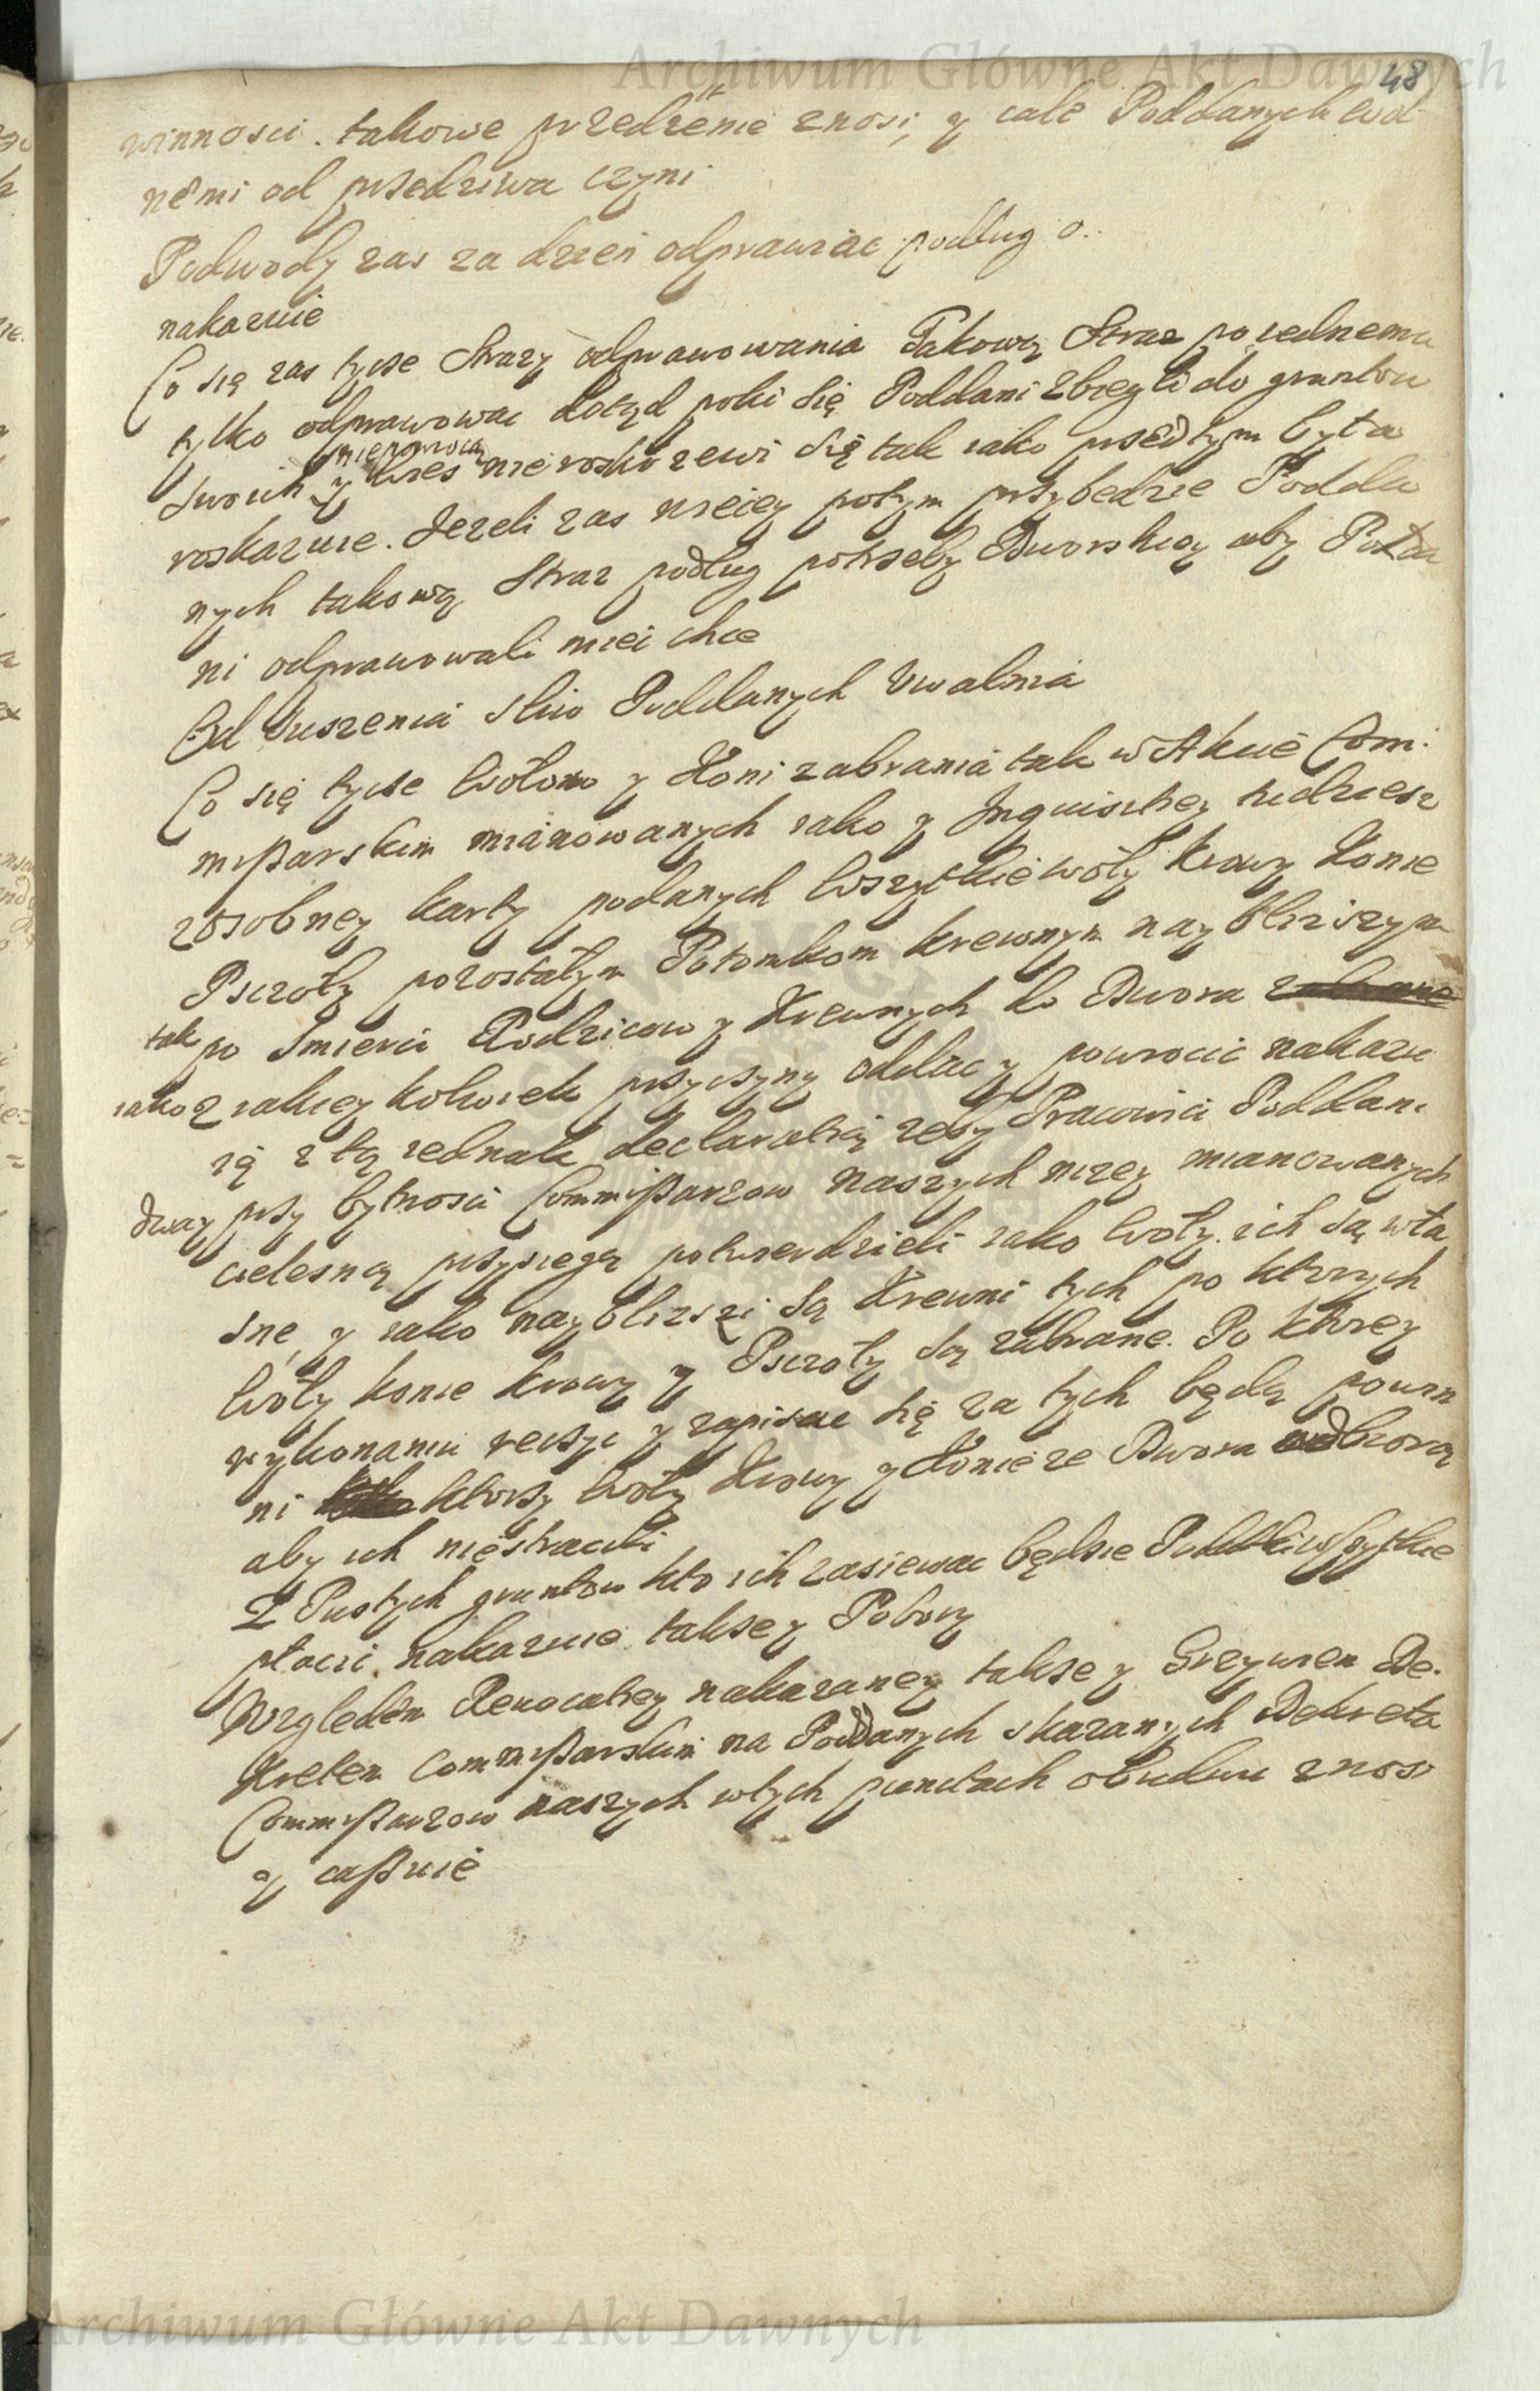 Archiwum Główne Akt Dawnych
48
winnosci. takowe przedzenie znosi, y cale Poddanych wol
nemi od przedziwa czyni
Podwody zas za dzien odprawiac podług o..
nakazuie
Co się zas tycse Strazy odprawowania Takową Straz po iednemu
tylko odprawowac dotąd poki się Poddani zbiegli do gruntow
swoich niepowrocą y wies nie roskrzewi się tak iako przedtym była
roskazuie. Jezeli zas więcey potym przybedzie Podda
nych takową Straz podług potrzeby Dworskiey aby Podda
ni odprawowali miec chce
Od suszenia sliw Poddanych Uwalnia
Co się tycse Wołow y Koni zabrania tak w Akcie Com:
mißarskim mianowanych iako y Inquisitiey tudziesz
zosobney karty podanych wszytkie woły krowy Konie
Psczoły pozostałym Potomkom krewnym nayblizszym
tak po Smierci Rodzicow y Krewnych do Dwora zabrane
iako z iakiey kolwiek przyczyny oddac y powrocic nakazu
ię z tą iednak declaratią zeby Pracowici Poddani
dway przy bytnosci Commißarzow naszych nizey mianowanych
cielesną przysięgą potwierdzieli iako woły ich są wła
sne, y iako nayblizszi są Krewni tych po ktorych
woły konie krowy y Psczoły są zabrane. Po ktorey
wykonaniu ręczyc y zapisac się za tych będą powin
ni ktorzy woły Krowy y Konie ze Dwora odbiorą
aby ich niestracili
Z Pustych gruntow kto ich zasiewac będzie Podatki wszytkie
płacic nakazuie takze y Pobory
Względem Revocatiey nakazaney takze y Grzywien De:
kretem Commißarskim na Poddanych skazanych Dekreta
Commißarzow naszych wtych punctach obudwu znosi
y caßuie
Archiwum Główne Akt Dawnych